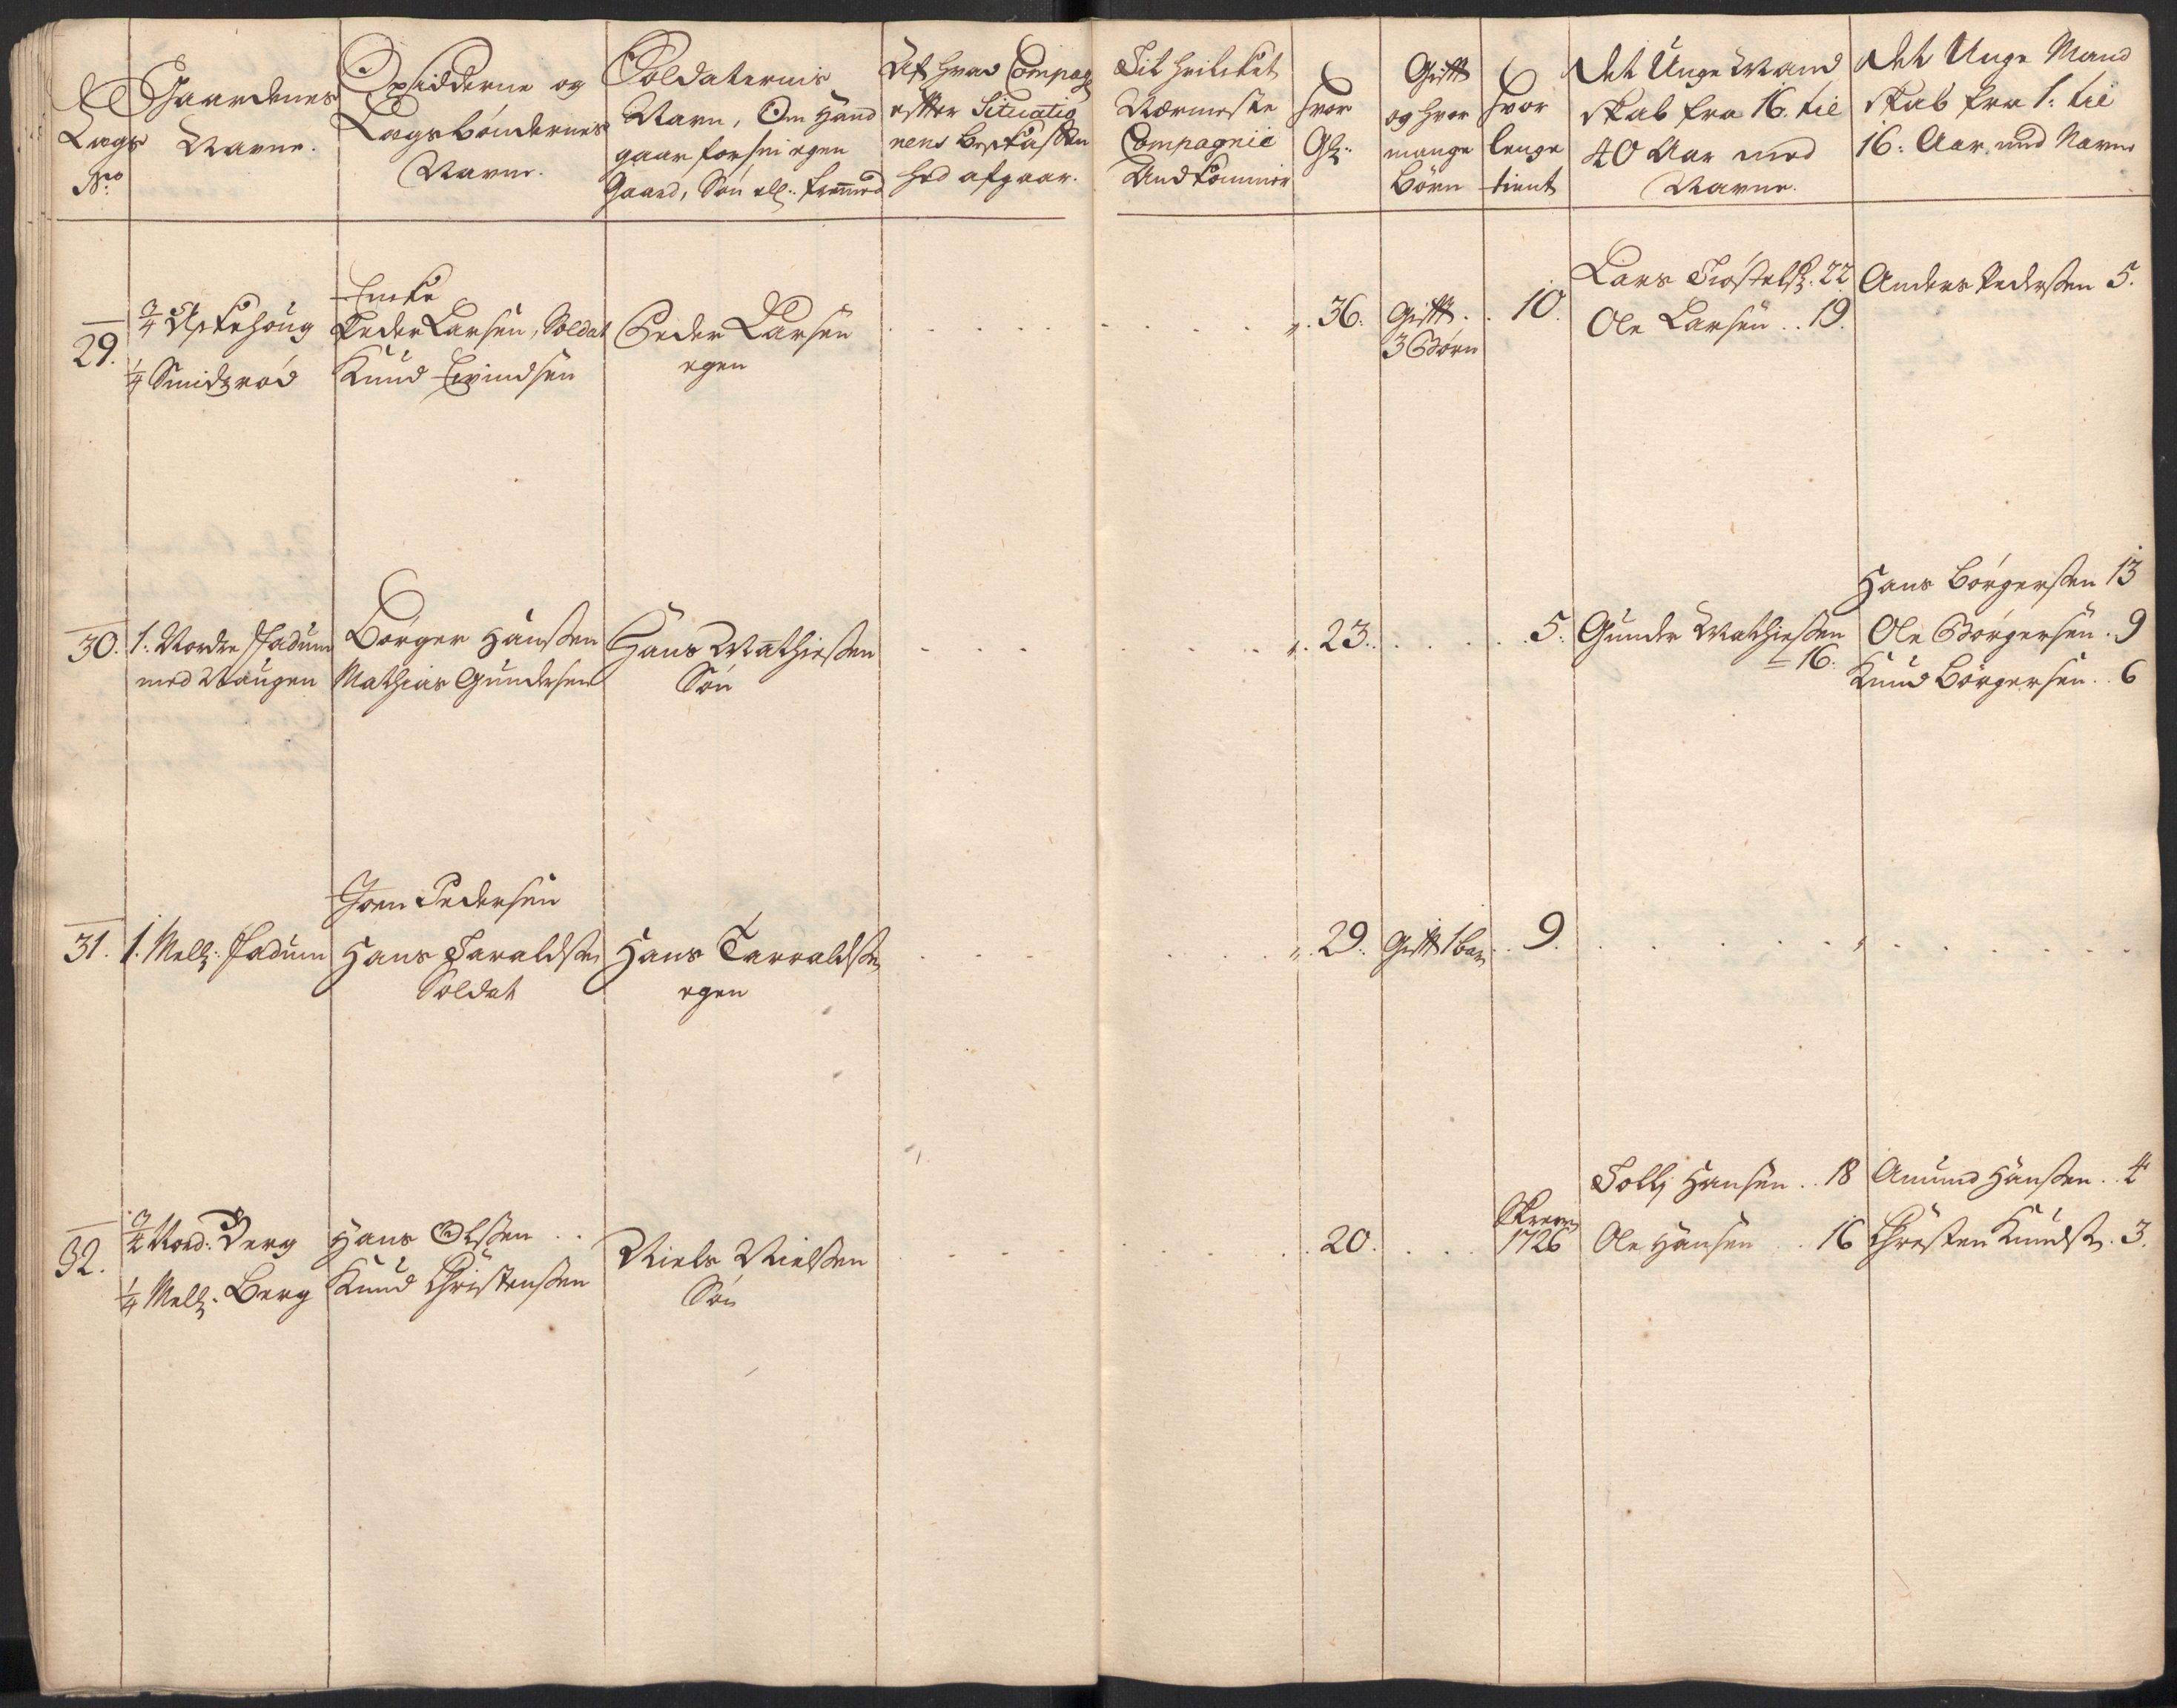 Lags
No
Gaardenes
Navne.
Opsidderne og
Lagsbøndernes
Navne.
Soldaternis
Navn, Om Hand
gaar for sin egen
Gaard, Søn ell: fremmed
Af hvad Compag
efter Situatio
nens Beskaffen
hed afgaar.
Til hvilket
Nærmeste
Compagnie
Andkommer
Hvor
Gl:
Gifft
og hvor
mange
Børn
Hvor
lenge
tient
Det Unge Mand
skab fra 16. til
40 Aar med
Navne.
Det Unge Mand
skab fra 1. til
16. Aar med Navne
29.
3/4 Askehoug
1/4 Smidsrød
Encke
Peder Larsen, Soldat
Knud Evindsen
Peder Larsen
egen
36.
Gifft
3 Børn
10.
Lars 22
Ole Larsen 19.
Anders Pedersen 5.
30.
1. Nordre Fadum
med Haugen
Børger Hansen
Mathias Gundersen
Hans Mathiesen
Søn
23.
5.
Gunder Mathiesen
16.
Hans Børgersen 13
Ole Børgersen 9
Knud Børgersen 6
31.
1. Mell: Fadum
Joen Pedersen
Hans Taraldsen
Soldat
Hans Tarraldsen
egen
29.
Gifft 1 barn
9.
32.
3/4 Nord: Berg
1/4 Mell: Berg
Hans Olsen
Knud Christensen
Niels Nielsen
Søn
20.
1726
Hansen 18
Ole Hansen 16
Amund Hansen 4
Christen Knudsen 3.